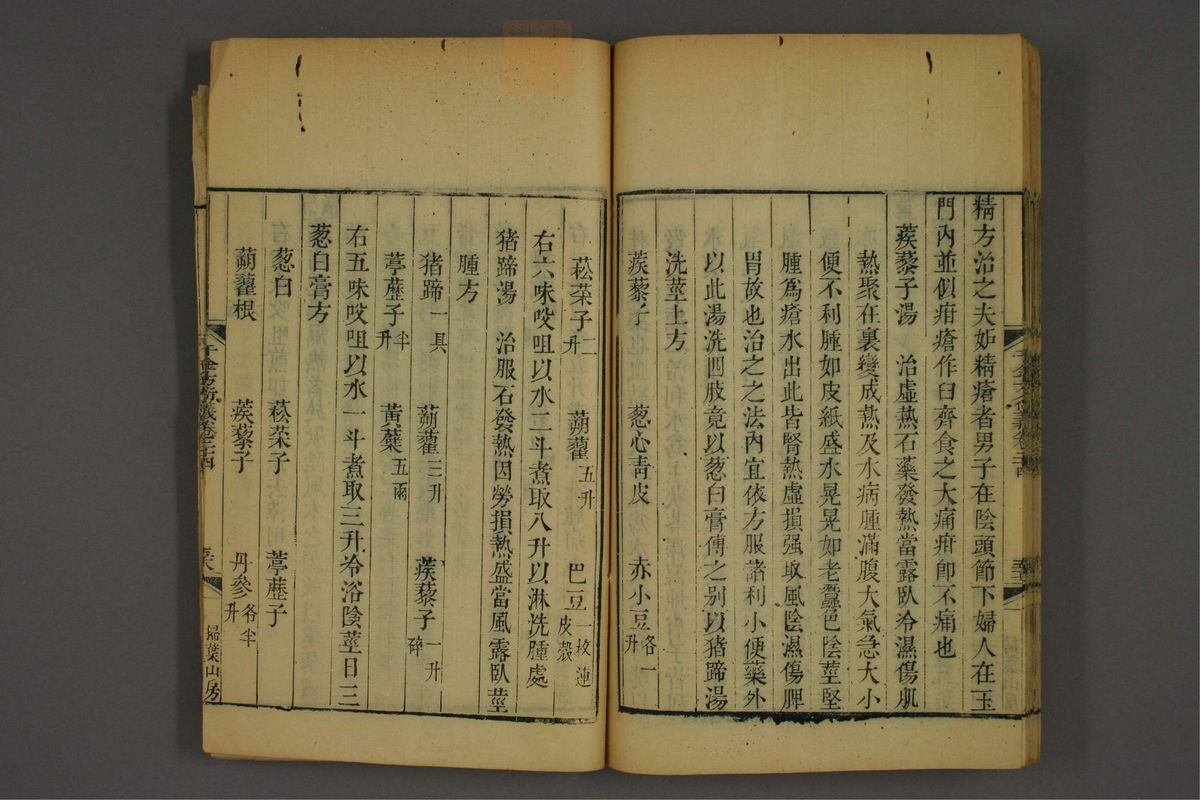 精方治之夫妒精瘡者男子在陰頭節下婦人在玉
門內並似疳瘡作臼齊食之大痛疳即不痛也
蒺藜子湯　治虛熱石藥發熱當露臥冷濕傷肌
熱聚在裏變成熱及水病腫滿腹大氣急大小
便不利腫如皮紙盛水晃晃如老蠶色陰莖堅
腫爲瘡水出此皆腎熱虛損强取風陰濕傷脾
胃故也治之之法內宜依方服諸利小便藥外
以此湯洗四肢竟以葱白膏傅之别以猪蹄湯
洗莖上方
蒺藜子　葱心青皮　赤小豆各一升
菘菜子二升　蒴藋五升　巴豆一枚連皮殼
右六味㕮咀以水二斗煮取八升以淋洗腫處
猪蹄湯　治服石發熱因勞損熱盛當風露臥莖
腫方
猪蹄一具　蒴藋三升　蒺藜子一升碎
葶藶子半升　黃蘗五兩
右五味㕮咀以水一斗煮取三升冷浴陰莖日三
葱白膏方
葱白　菘菜子　葶藶子
蒴藋根　蒺藜子　丹參各半升
千金方衍義卷之二十四
掃葉山房